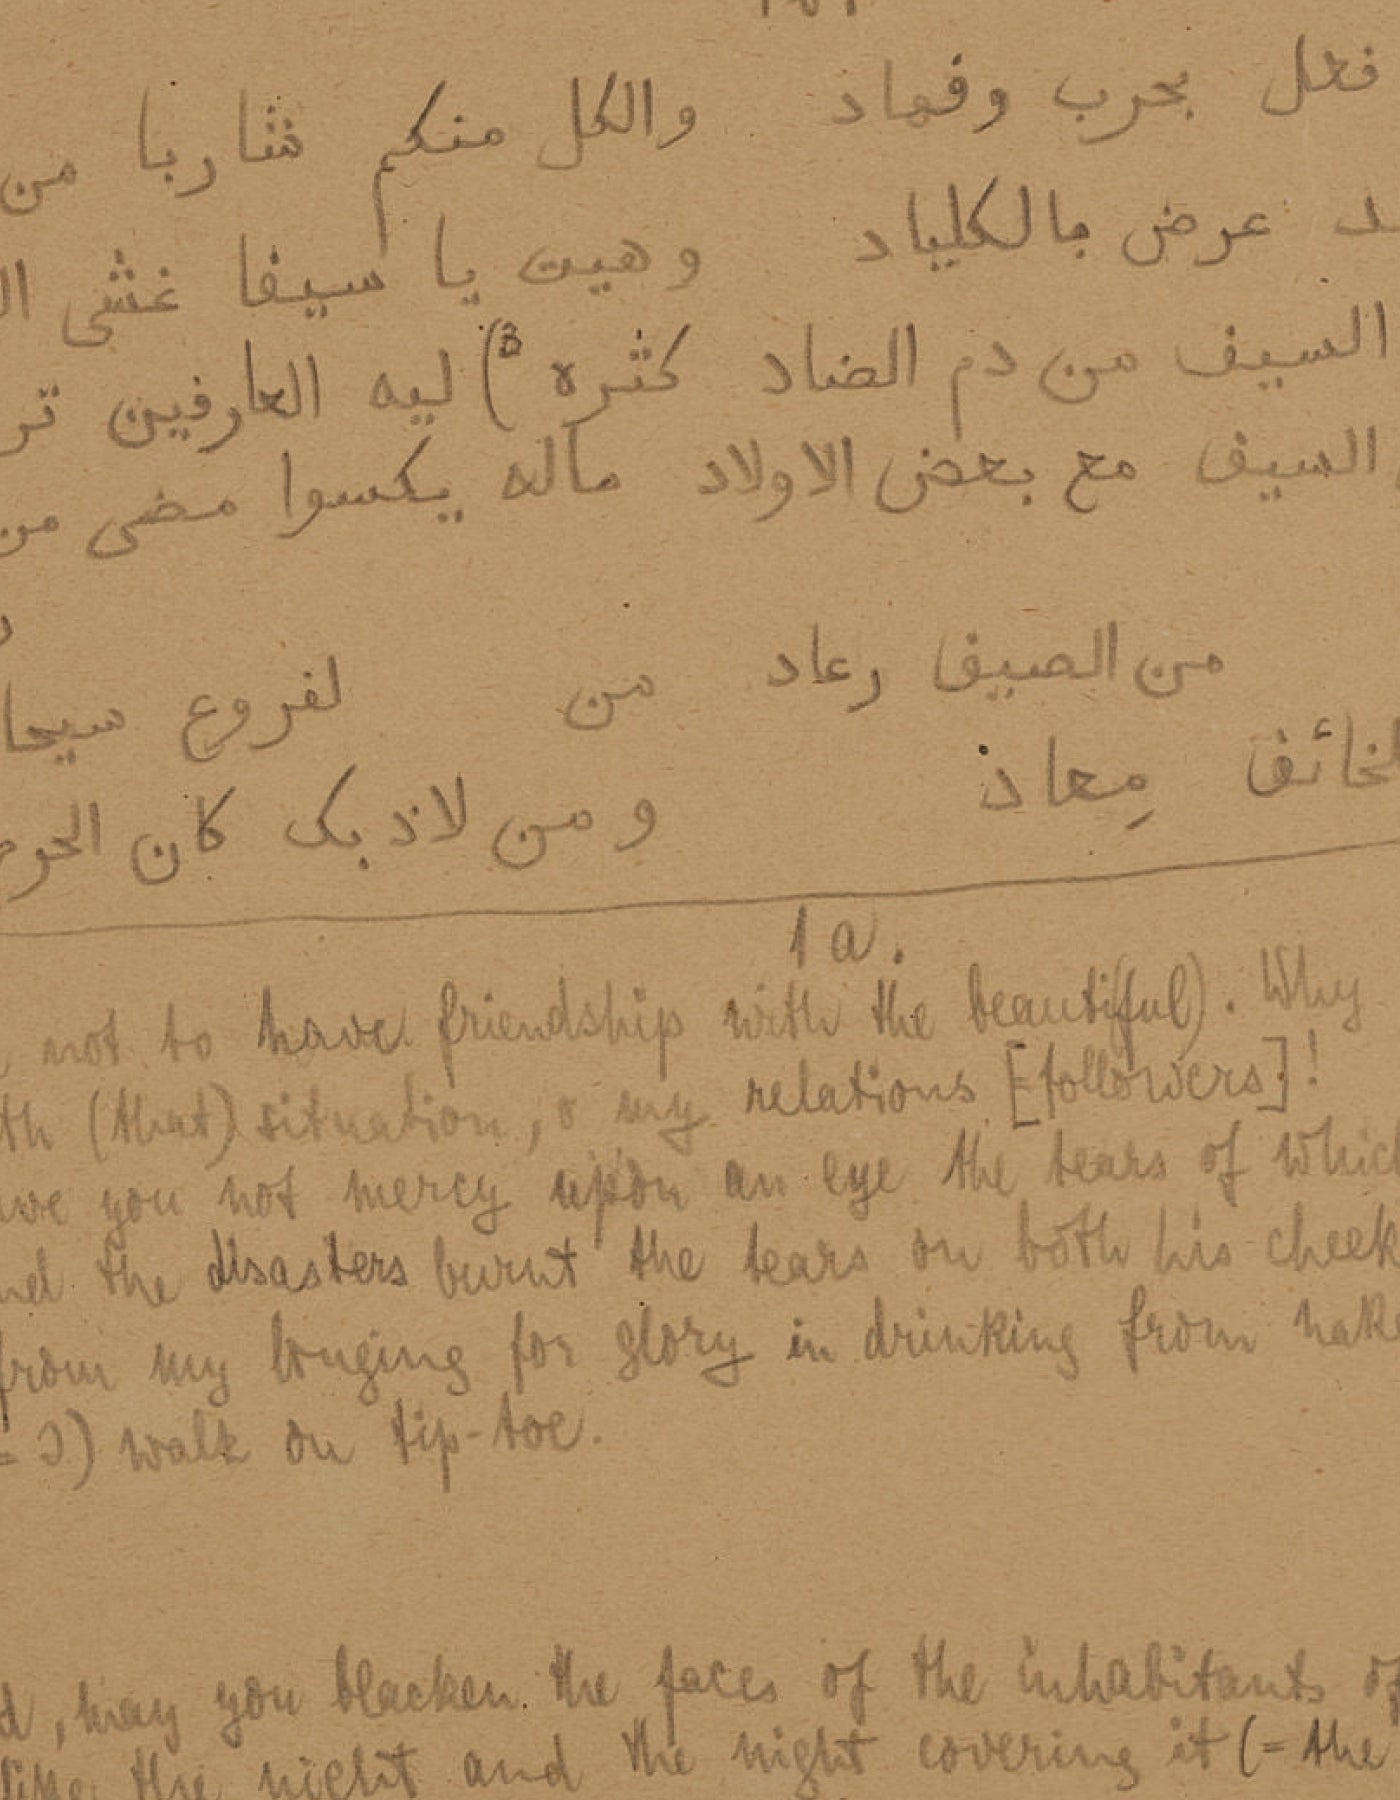 فعل بحرب وفهاد والكل منكم شاربا من
عرض بالكلياد وهيت يا سيفا غشى
السيف من دم الضاد كثره ³) ليه العارفين تر
السيف مع بعض الاولاد ماله يكسوا مضى من
من الصيف رعاد من لفروع سيحا
لخائف مِعاذ ومن لاذ بك كان الحو
1 a.
not to have friendship with the beautiful). Why
th (that) situation, o my relations [= followers]!
ve you not mercy upon an eye the tears of which
nd the disasters burnt the tears on both his cheek
from my longing for glory in drinking from nake
= I) walk on tip-toe.
d, may you blacken the faces of the inhabitants of
like the night and the night covering it (= the